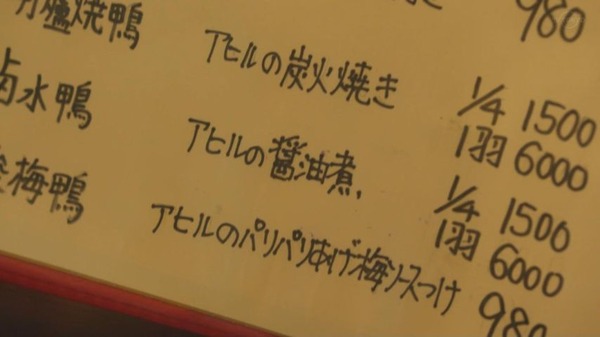 980
燒鴨 アヒルの炭火焼き 1/4 1500
1羽 6000
水鴨 アヒルの醤油煮 1/4 1500
1羽 6000
梅鴨 アヒルのパリパリあげ梅ソースつけ 980